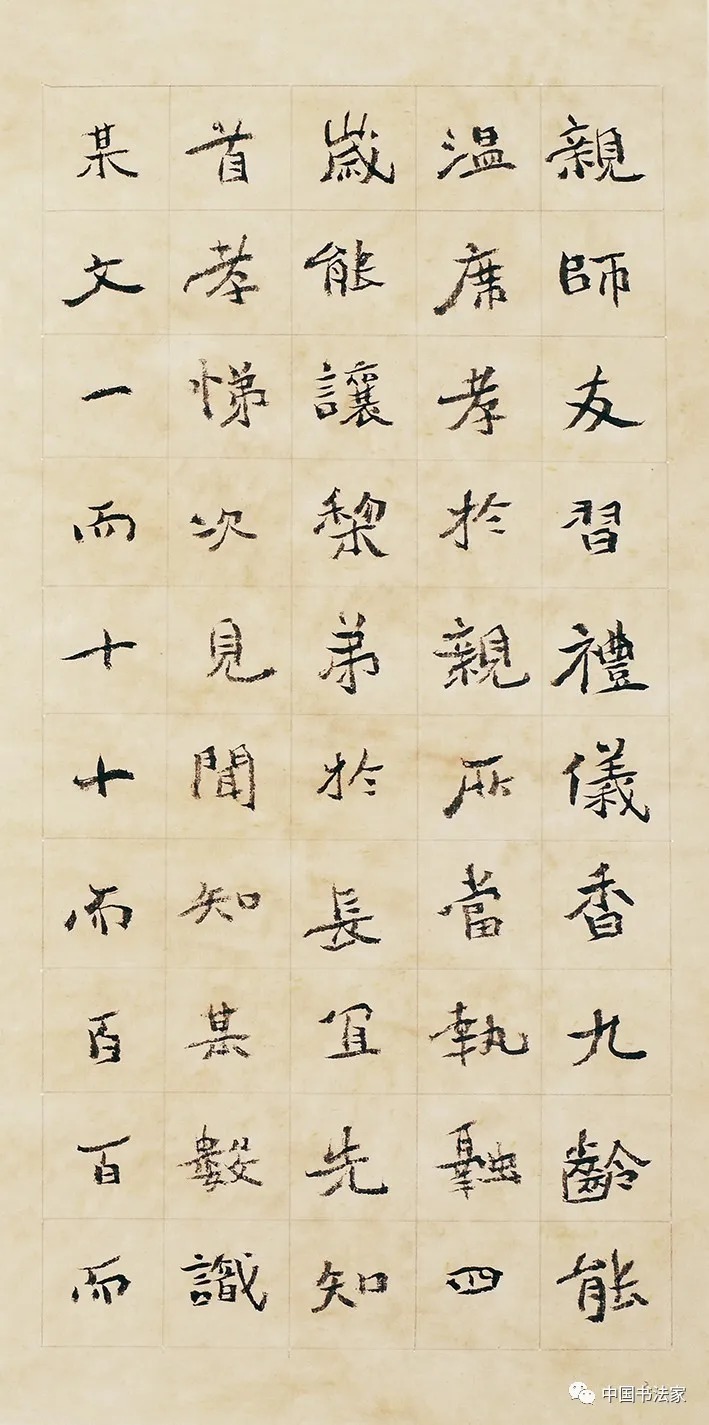 親師友習禮儀香九齡能
温席孝於親所當執融四
歲能讓梨弟於長宜先知
首孝悌次見聞知某數識
某文一而十十而百百而
中国书法家